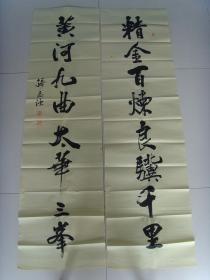 精金百煉良驥千里
黄河九曲太華三峯